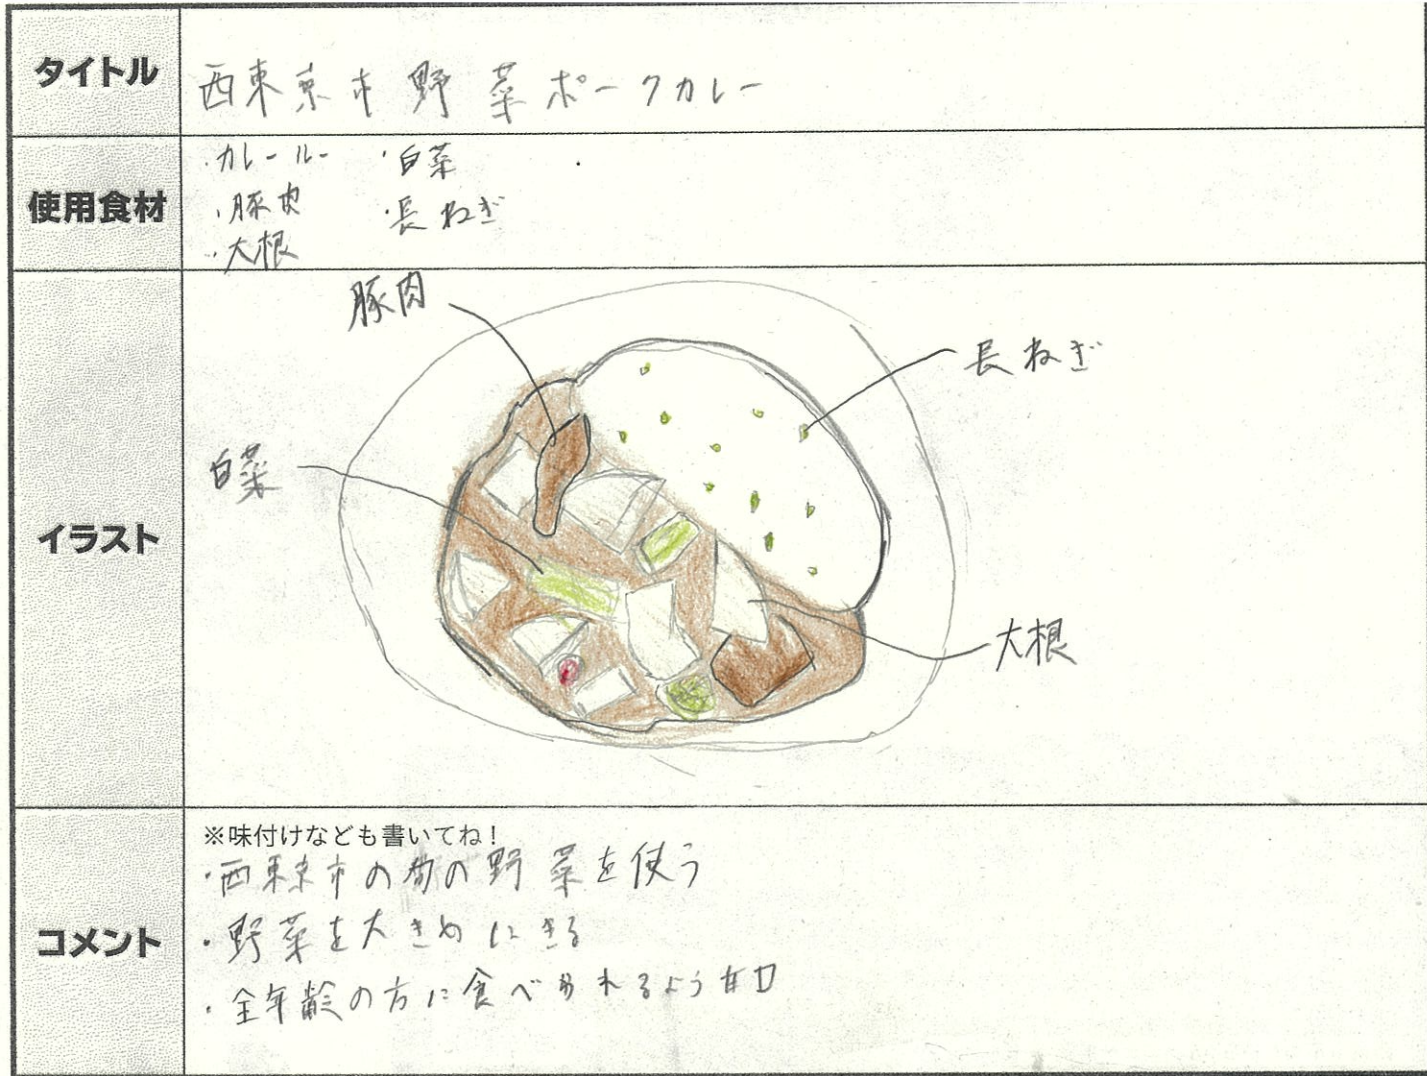 タイトル
西東京市野菜ポークカレー
使用食材
・カレールー ・白菜
・豚肉 ・長ねぎ
・大根
イラスト
豚肉
長ねぎ
白菜
大根
コメント
※味付けなども書いてね！
・西東京市の旬の野菜を使う
・野菜を大きめにきる
・全年齢の方に食べられるよう甘口